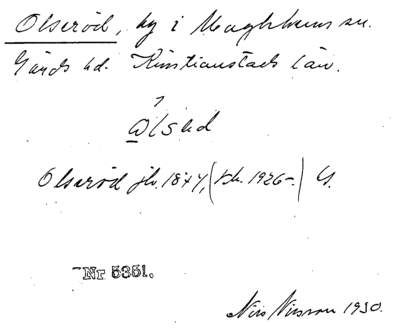 Olseröd, by i Maglehems sn.
Gärds hd. Kristianstads län.
Olseröd jb. 1847, (Bk. 1926-) G.
Nr 5351.
Nils Nilsson 1930.